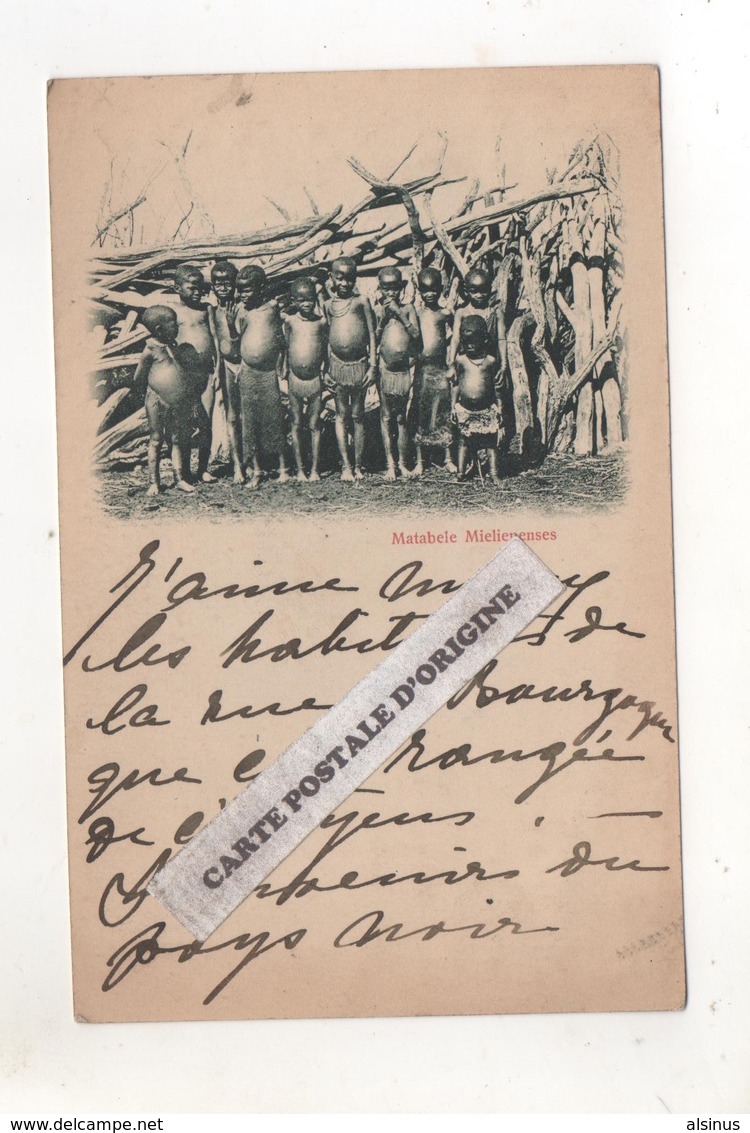 Matabele Mieliepenses
J'aime
les de
la rue Bourgogne
que rangée
de
Souvenirs du
pays noir
CARTE POSTALE D'ORIGINE
delcampe.net
alsinus